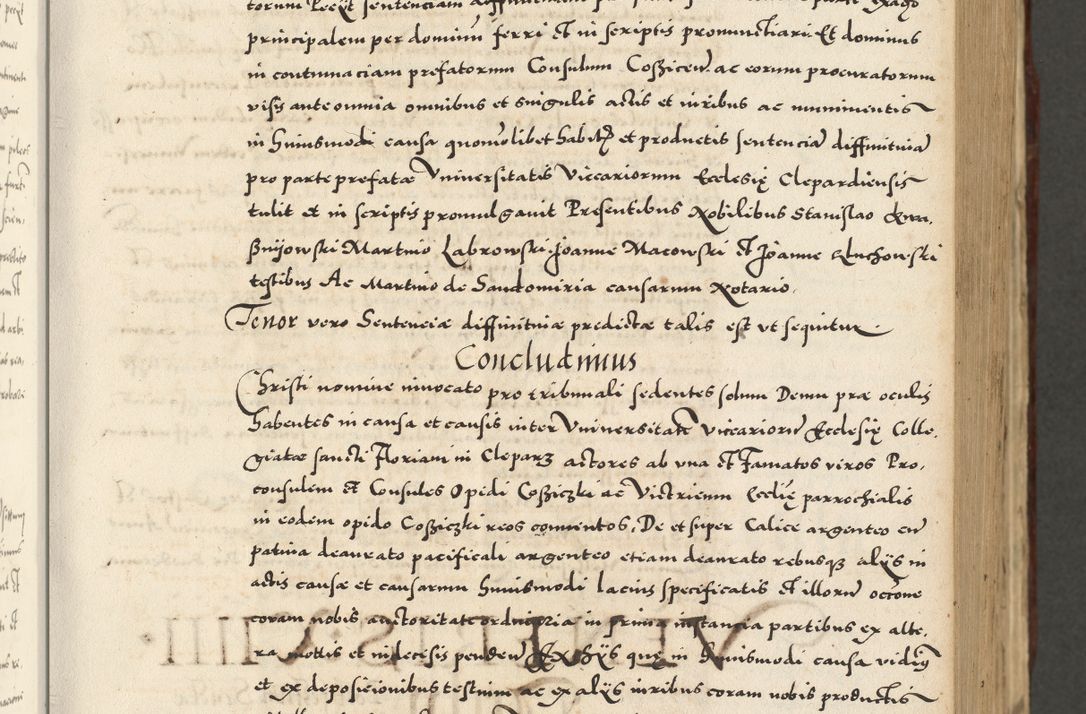 principalem per dominum ferri et in scriptis pronunctiari. Et dominus
in contumaciam prefatorum Consulum Coßzicen. ac eorum procuratorum
visis ante omnia omnibus et singulis actis et iuribus ac munimentis
in huiusmodi causa quomolibet habitis et productis sentencia diffinitiua
pro parte prefatæ Vniuersitatis Viccariorum Ecclesię Clepardiensis
tulit et in scriptis promulgauit Presentibus Nobilibus Stanislao
Martino Labrowski Joanne Macowski et Joanne
testibus Ac Martino de Sandomiria causarum Notario.
Tenor vero Sentenciæ diffinitiuæ predictæ talis est vt sequitur.
Concludimus
Christi nomine inuocato pro tribunali sedentes solum Deum præ oculis
habentes in causa et causis inter Vniuersitatem viccariorum Ecclesię Colle,
giatæ sancti Floriani in Cleparz actores ab vna et Famatos viros Pro,
consulem et Consules Opidi Coßziczki ac Victricum Ecclię parrochialis
in eodem opido Coßziczki reos conuentos, De et super Calice argenteo cum
patina deaurato pacificali argenteo etiam deaurato rebusque alijs in
actis causæ et causarum huiusmodi lacius specificatis et illorum occne
coram nobis auctoritate ordinaria in prima instancia partibus ex alte,
ra motis et indecisis penden Ex hijs quę in huiusmodi causa vidimus
et ex deposicionibus testium ac ex alijs iuribus coram nobis productis